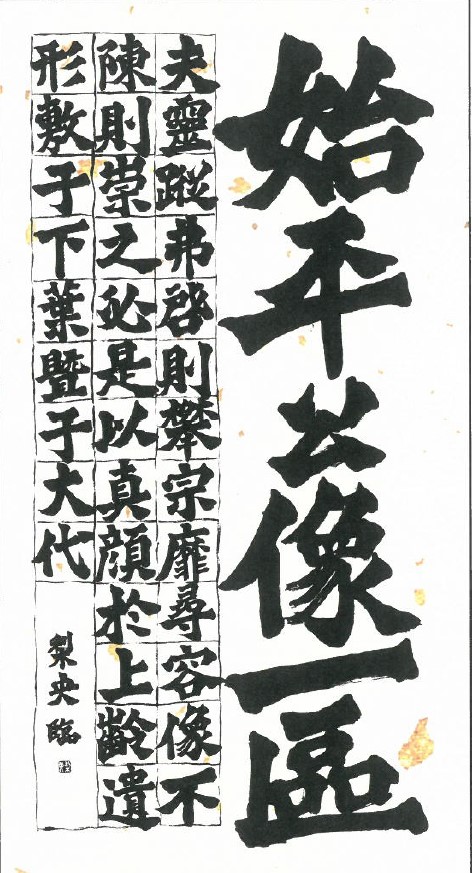 始平公像一區
夫靈蹤弗啓則攀宗靡尋容像不
陳則崇之必是以真顔於上齡遺
形敷于下葉暨于大代
梨央臨